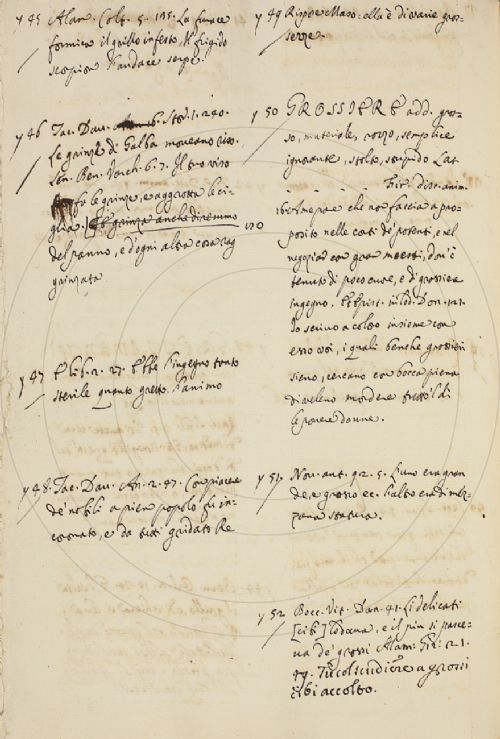 y 45 Alam. Colt. 5. 135. La furace
formica il grillo infesto, il frigido
scorpion l'audace serpe.
y 46 Tac. Dav. Stor. 1. 240.
Le grinze di Galba moveano riso.
Sen. Ben. Varch. 6. 7. Il tuo viso
fa le grinze, e aggrotta le ci-
glia. Le grinze anche diremmo
del panno, e d'ogni altra cosa rag
grinzata
y 47 2. 27. Ebbe l'ingegno tanto
sterile quanto gretto l'animo
y 48 Tac. Dav. An. 2. 47. Con piacere
de' nobili a pien popolo fu in-
coronato, e da tutti gridato Re
y 49 Rispose Maso: ella è di varie gros-
sezze.
y 50 GROSSIERE add. gros-
so, materiale, rozzo, semplice
ignorante, stolto, stupido Lat.
Fir. disc. anim.
che non faccia a pro-
posito nelle corti de' potenti, e nel
negoziar con gran maestri, dov'è
tenuto di poco cuore, e di grossiere
ingegno,
Io scrivo a coloro insieme con
esso voi, i quali benche grossieri
sieno, cercano con bocca piena
di veleno mordere tutto'l dì
le povere donne.
y 51 Nov. ant. 92. 5. L'uno era gran
de, e grosso ec. l'altro era di mez-
zana statura.
y 52 Bocc. Vit. Dan. 41. Li delicati
[cibi] lodava, e il più si pasce-
va de' grossi Alam. Gir. 2. 1.
49. a grossi
cibi accolto.